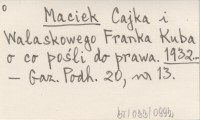 Maciek Cajka i
Wałaskowego Franka Kuba
o co pośli do prawa. 1932...
– Gaz. Podh. 20, nr 13.